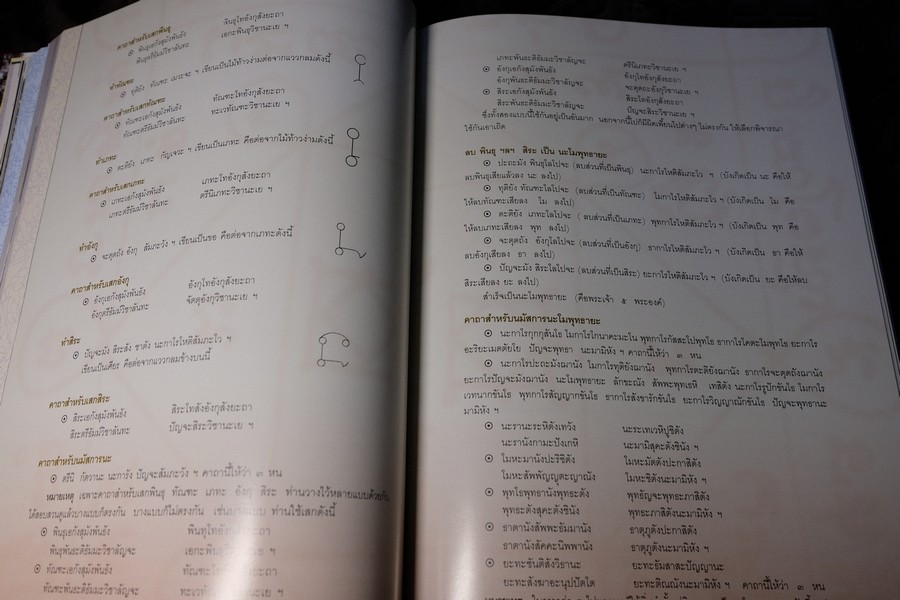 คาถาสำหรับเสกพินธุ
๏ พินธุเอกังสุมังพันธัง พินธุโทอังกุสังยะถา
พินธุตรีธัมมัวิชาลันทะ เอกะพินธุวิชานะเย ฯ
ทำทัณฑะ
๏ ทุติยัง ทัณฑะ เมวะจะ ฯ เขียนเป็นไม้ท้าวง่ามต่อจากแววกลมดังนี้
คาถาสำหรับเสกทัณฑะ
๏ ทัณฑะเอกังสุมังพันธัง ทัณฑะโทอังกุสังยะถา
ทัณฑะตรีธัมมัวิชาลันทะ ทะเวทัณฑะวิชานะเย ฯ
ทำเภทะ
๏ ตะติยัง เภทะ กัญเจวะ ฯ เขียนเป็นเภทะ คือต่อจากไม้ท้าวง่ามดังนี้
คาถาสำหรับเสกเภทะ
๏ เภทะเอกังสุมังพันธัง เภทะโทอังกุสังยะถา
เภทะตรีธัมมัวิชาลันทะ ตรีนิเภทะวิชานะเย ฯ
ทำอังกุ
๏ จะตุตถัง อังกุ สัมภะวัง ฯ เขียนเป็นขอ คือต่อจากเภทะดังนี้
คาถาสำหรับเสกอังกุ
๏ อังกุเอกังสุมังพันธัง อังกุโทอังกุสังยะถา
อังกุตรีธัมมัวิชาลันทะ จัตตุอังกุวิชานะเย ฯ
ทำสิระ
๏ ปัญจะมัง สิระสัง ชาตัง นะกาโรโหติสัมภะโว ฯ
เขียนเป็นเศียร คือต่อจากแววกลมข้างบนนี้
คาถาสำหรับเสกสิระ
๏ สิระเอกังสุมังพันธัง สิระโทสังอังกุสังยะถา
สิระตรีธัมมัวิชาลันทะ ปัญจะสิระวิชานะเย ฯ
คาถาสำหรับนมัสการนะ
๏ ตรีนิ กัตวานะ นะการัง ปัญจะสัมภะวัง ฯ คาถานี้ให้ว่า ๓ หน
หมายเหตุ เฉพาะคาถาสำหรับเสกพินธุ ทัณฑะ เภทะ อังกุ สิระ ท่านวางไว้หลายแบบด้วยกัน
ได้สอบสวนดูแล้วบางแบบก็ตรงกัน บางแบบก็ไม่ตรงกัน เช่นบางแบบ ท่านใช้เสกดังนี้
๏ พินธุเอกังสุมังพันธัง พินทุโทอังกุสังยะถา
พินธุพันธะตีธัมมะวิชาลัญจะ เอกะพินธุวิชานะเย ฯ
๏ ทัณฑะเอกังสุมังพันธัง ทัณฑะโท
ทัณฑะพันธะตีธัมมะวิชาลัญจะ ทะเวทัณ
เภทะพันธะตีธัมมะวิชาลัญจะ ตรีนิเภทะวิชานะเย ฯ
๏ อังกุเอกังสุมังพันธัง อังกุโทอังกุสังยะถา
อังกุพันธะตีธัมมะวิชาลัญจะ จะตุตถะอังกุวิชานะเย ฯ
๏ สิระเอกังสุมังพันธัง สิระโทอังกุสังยะถา
สิระพันธะตีธัมมะวิชาลัญจะ ปัญจะสิระวิชานะเย ฯ
ซึ่งทั้งสองแบบนี้ใช้กันอยู่เป็นอันมาก นอกจากนี้ไปก็มีผิดเพี้ยนไปต่างๆ ไม่ตรงกัน ให้เลือกพิจารณา
ใช้กันเอาเถิด
ลบ พินธุ ฯลฯ สิระ เป็น นะโมพุทธายะ
๏ ปะถะมัง พินธุโลไปจะ (ลบส่วนที่เป็นพินธุ) นะกาโรโหติสัมภะโว ฯ (บังเกิดเป็น นะ คือให้
ลบพินธุเสียแล้วลง นะ ลงไป)
๏ ทุติยัง ทัณฑะโลไปจะ (ลบส่วนที่เป็นทัณฑะ) โมกาโรโหติสัมภะโว ฯ (บังเกิดเป็น โม คือ
ให้ลบทัณฑะเสียลง โม ลงไป)
๏ ตะติยัง เภทะโลไปจะ (ลบส่วนที่เป็นเภทะ) พุทกาโรโหติสัมภะโว ฯ (บังเกิดเป็น พุท คือ
ให้ลบเภทะเสียลง พุท ลงไป)
๏ จะตุตถัง อังกุโลไปจะ (ลบส่วนที่เป็นอังกุ) ธากาโรโหติสัมภะโว ฯ (บังเกิดเป็น ธา คือให้
ลบอังกุเสียลง ธา ลงไป)
๏ ปัญจะมัง สิระโลไปจะ (ลบส่วนที่เป็นสิระ) ยะกาโรโหติสัมภะโว ฯ (บังเกิดเป็น ยะ คือให้ลบ
สิระเสียลง ยะ ลงไป)
สำเร็จเป็นนะโมพุทธายะ (คือพระเจ้า ๕ พระองค์)
คาถาสำหรับนมัสการนะโมพุทธายะ
๏ นะกาโรกุกกุสันโธ โมกาโรโกนาคะมะโน พุทกาโรกัสสะโปพุทโธ ธากาโรโคตะโมพุทโธ ยะกาโร
อะริยะเมตตัยโย ปัญจะพุทธา นะมามิหัง ฯ คาถานี้ให้ว่า ๓ หน
๏ นะกาโรปะถะมังฌานัง โมกาโรทุติยังฌานัง พุทกาโรตะติยังฌานัง ธากาโรจะตุตถังฌานัง
ยะกาโรปัญจะมังฌานัง นะโมพุทธายะ ลักขะณัง สัพพะพุทเธหิ เทสิตัง นะกาโรรูปักขันโธ โมกาโร
เวทนากขันโธ พุทกาโรสัญญากขันโธ ธากาโรสังขารักขันโธ ยะกาโรวิญญาณักขันโธ ปัญจะพุทธานะ
มามิหัง ฯ
๏ นะรานะระหิตังเทวัง นะระเทเวหิปูชิตัง
นะรานังกามะปังเกหิ นะมามิสุคะตังชินัง ฯ
๏ โมหะมานังปะริชิตัง โมหะมัตตังปะกาสิตัง
โมหะสัพพัญญูตะญาณัง โมหะชิตังนะมามิหัง ฯ
๏ พุทโธพุทธานังพุทธะตัง พุทธัญจะพุทธะภาสิตัง
พุทธะตังสุคะตังชินัง พุทธะภาสิตังนะมามิหัง ฯ
๏ ธาตานังสัพพะธัมมานัง ธาตุภูตังปะกาสิตัง
ธาตานังสัคคะนิพพานัง ธาตุภูตังนะมามิหัง ฯ
๏ ยะทะขันติสังวิธานะ ยะทะธัมสาสะปัญญานะ
ยะทะสังฆาอะนุปปัตโต ยะทะติณณังนะมามิหัง ฯ คาถานี้ให้ว่า ๓ หน